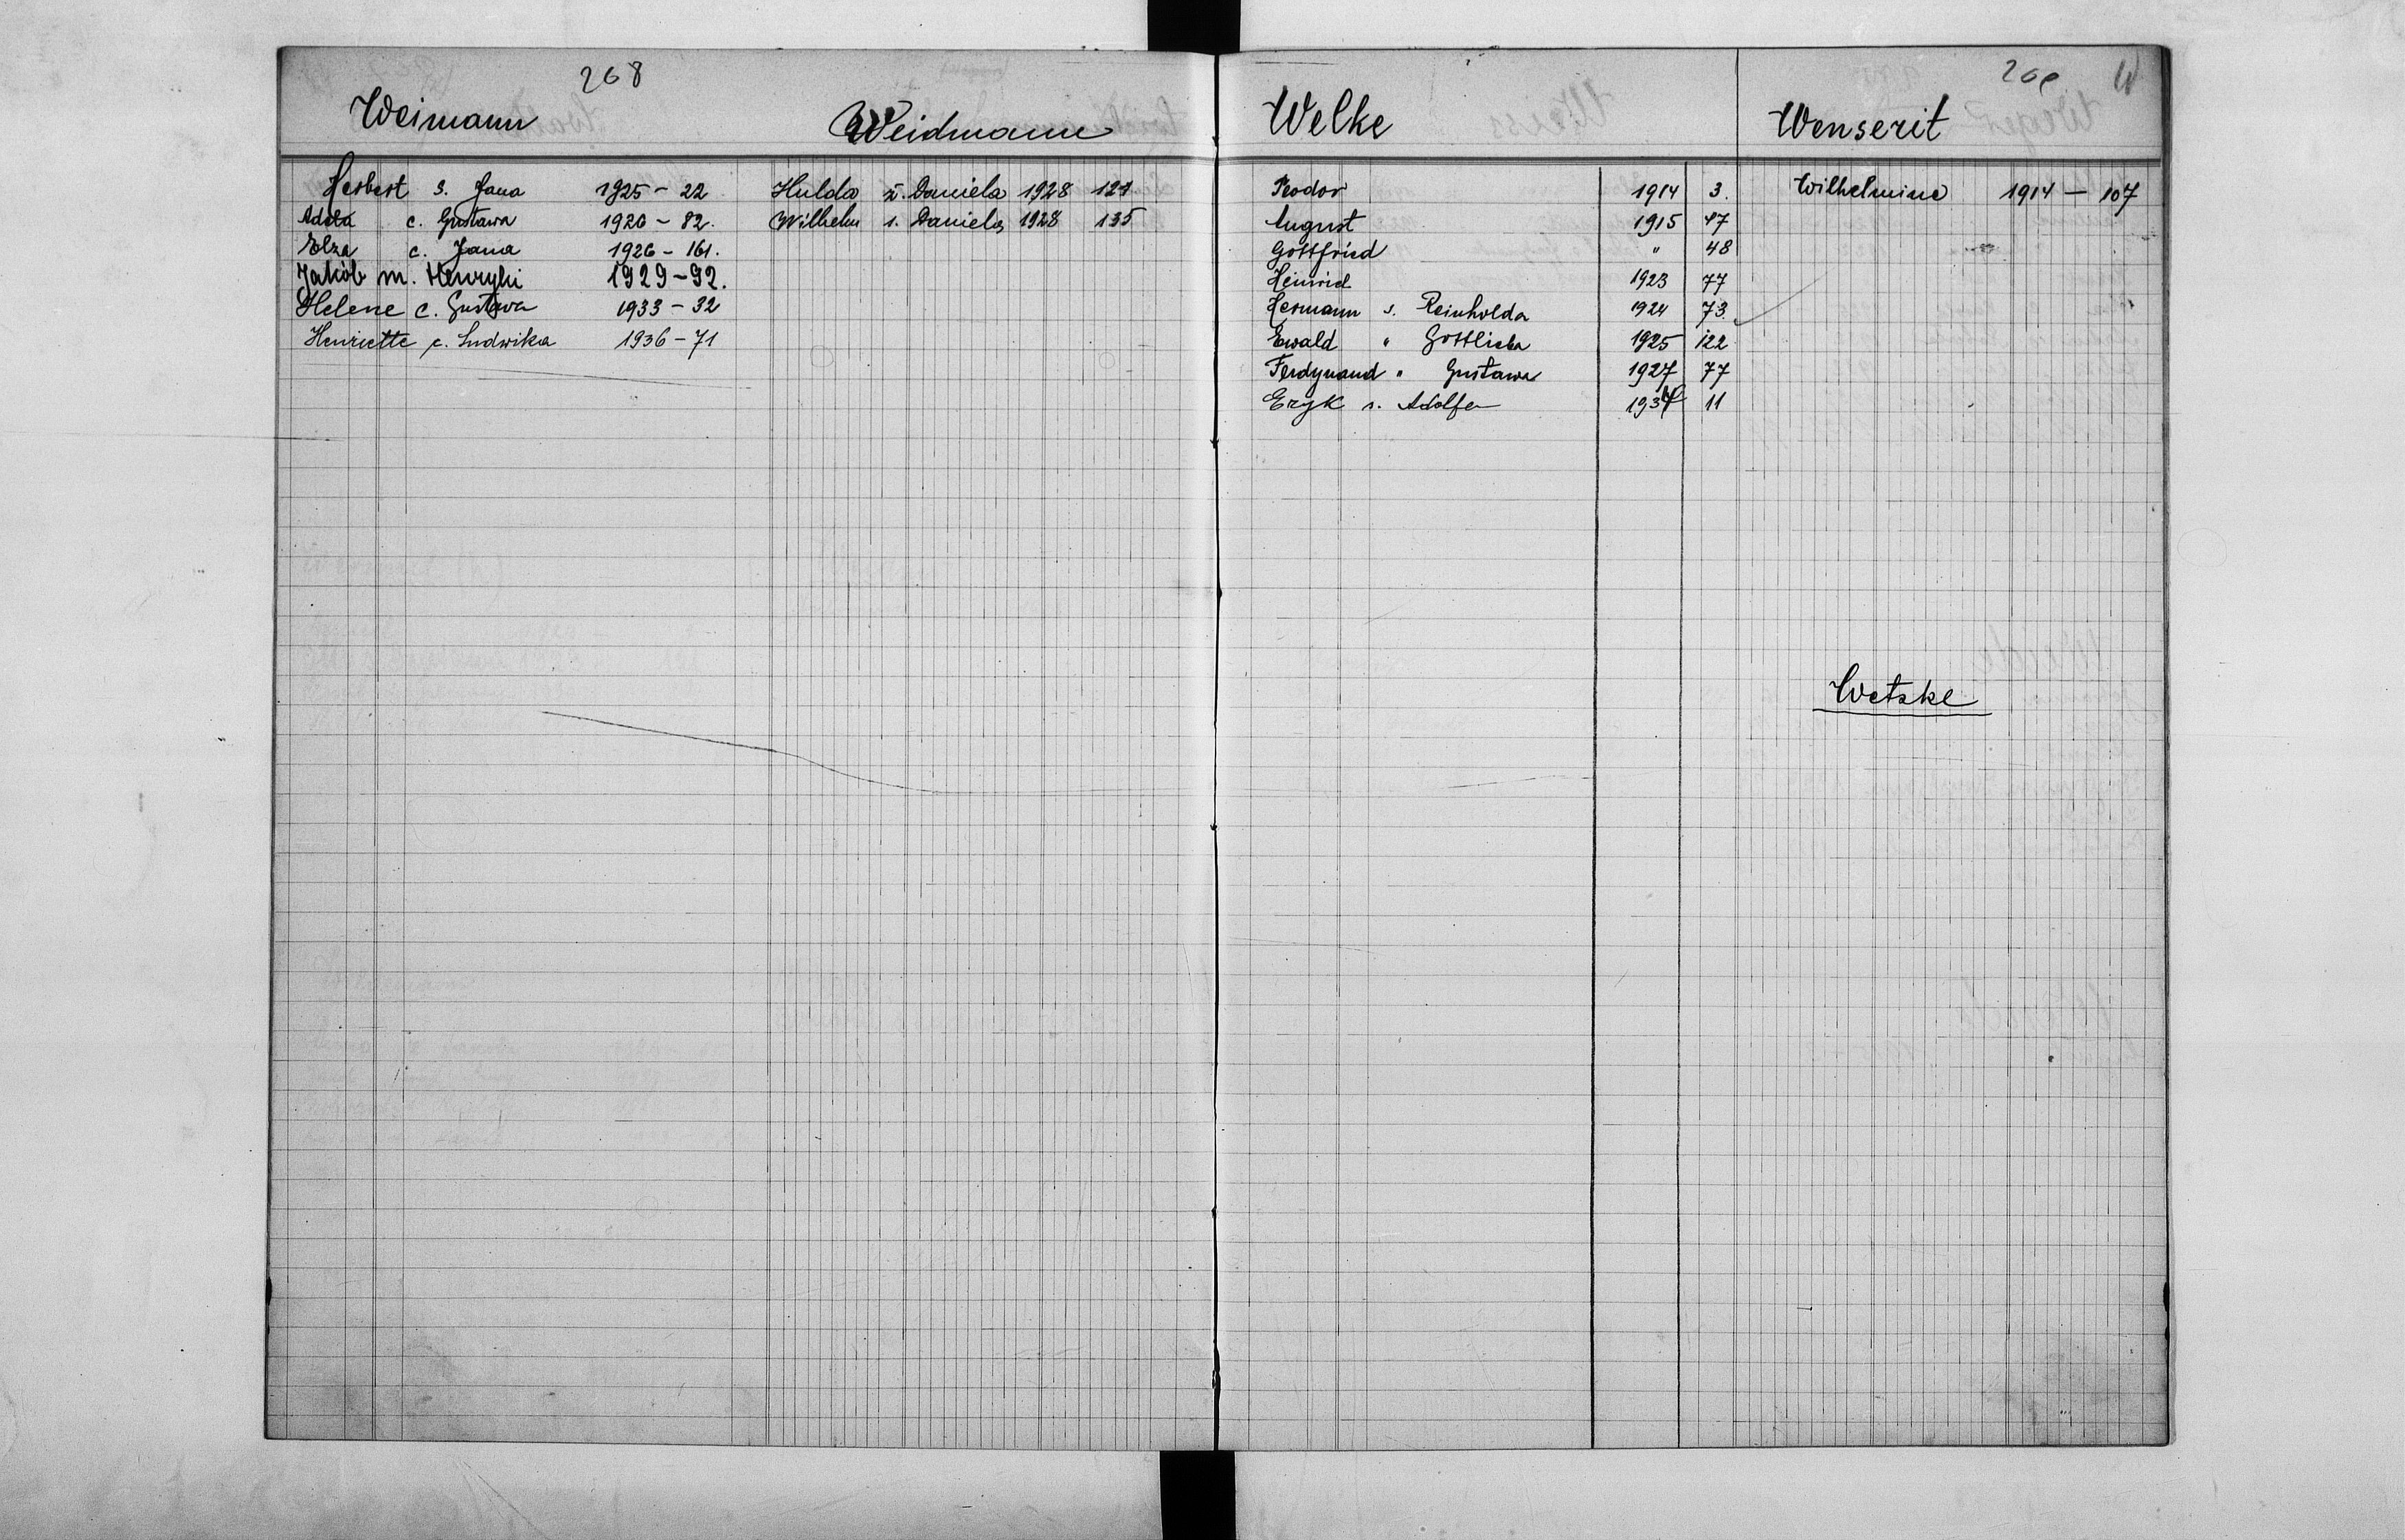 268
Weimann
Herbert s. Jana 1925 - 22
Adela c. Gustawa 1920 - 82.
Elza c. Jana 1926 - 161.
Jakób m. Henryki 1929 - 92.
Helene c. Gustawa 1933 - 32
Henriette c. Ludwika 1936 - 71
Weidmann
Hulda ż. Daniela 1928 127
Wilhelm s. Daniela 1928 135
Welke
Teodor 1914 3.
August 1915 47
Gottfried " 48
Heinrich 1923 77
Hermann s. Reinholda 1924 73.
Ewald " Gottlieba 1925 122
Ferdynand " Gustawa 1927 77
Eryk s. Adolfa 1934 11
W
Wenserit
Wilhelmine 1914 - 107
Wetzke